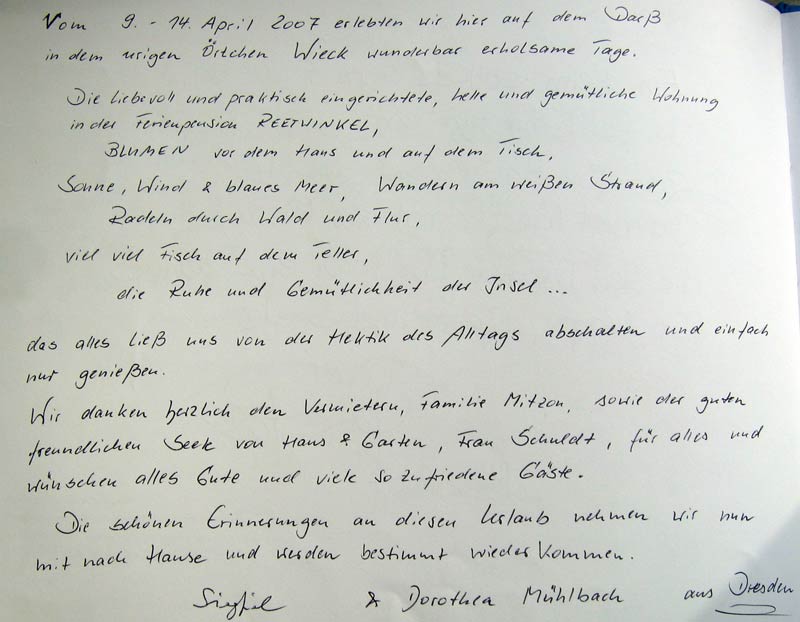 Vom 9. - 14. April 2007 erlebten wir hier auf dem Darß
in dem urigen Örtchen Wieck wunderbar erholsame Tage.
Die liebevoll und praktisch eingerichtete, helle und gemütliche Wohnung
in der Ferienpension REETWINKEL,
BLUMEN vor dem Haus und auf dem Tisch,
Sonne, Wind & blaues Meer, Wandern am weißen Strand,
Radeln durch Wald und Flur,
viel viel Fisch auf dem Teller,
die Ruhe und Gemütlichkeit der Insel ...
das alles ließ uns von der Hektik des Alltags abschalten und einfach
nur genießen.
Wir danken herzlich den Vermietern, Familie Mitzon, sowie der guten
freundlichen Seele von Haus & Garten, Frau Schuldt, für alles und
wünschen alles Gute und viele so zufriedene Gäste.
Die schönen Erinnerungen an diesen Urlaub nehmen wir nun
mit nach Hause und werden bestimmt wieder kommen.
& Dorothea Mühlbach aus Dresden